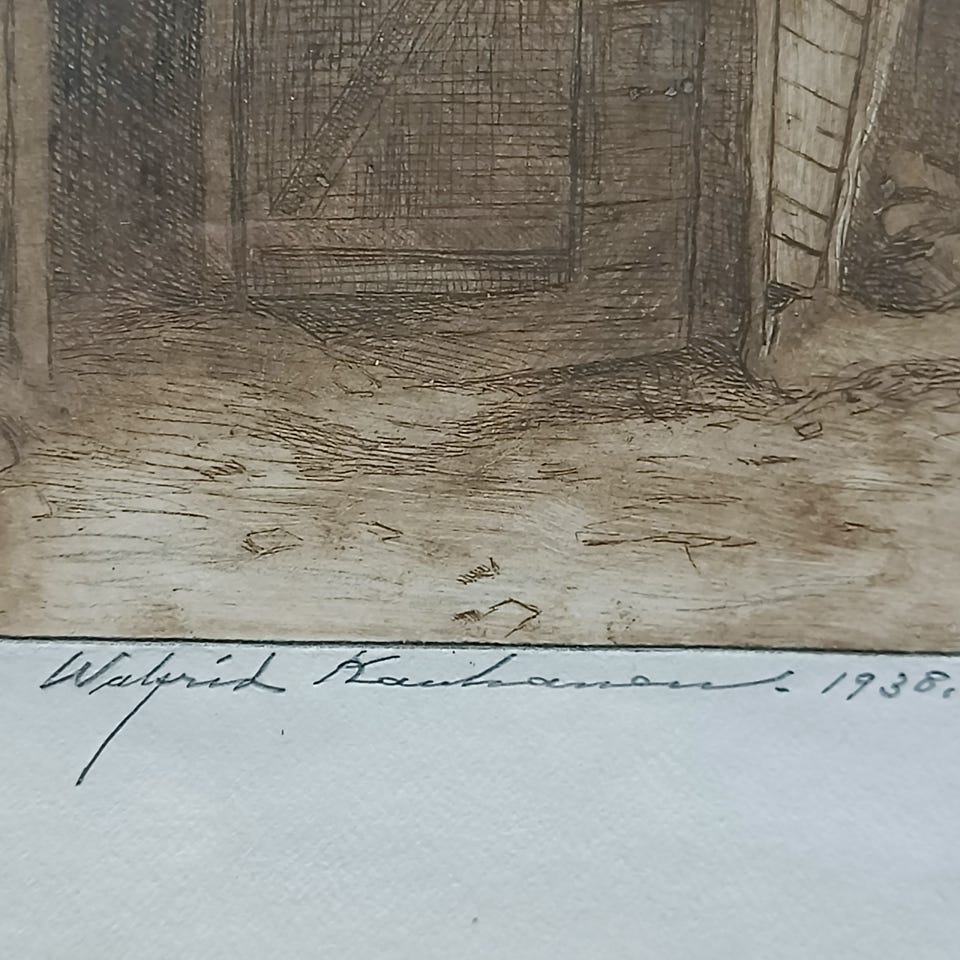 Walfrid Kauhanen. 1938.